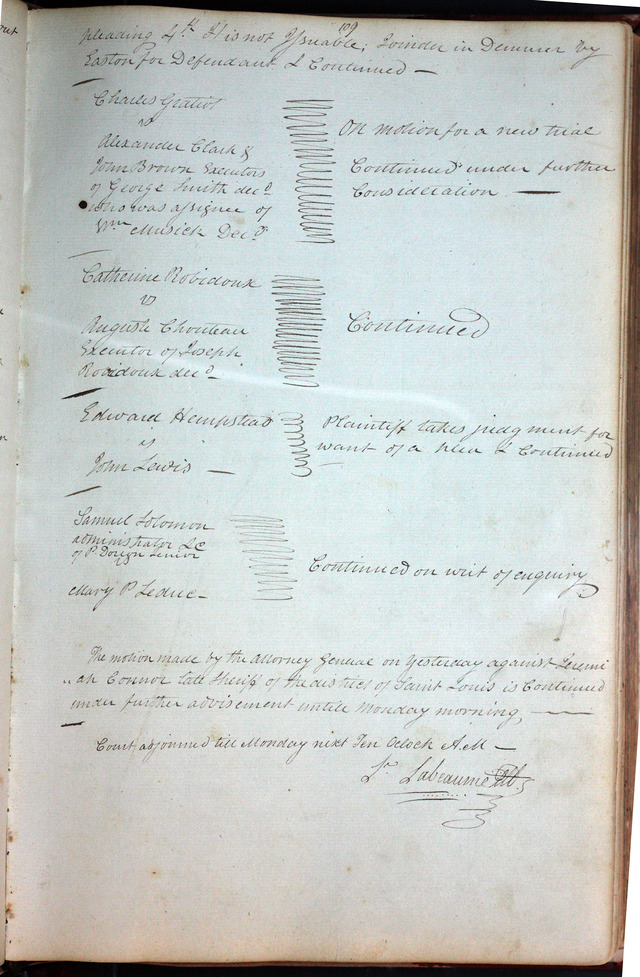 109
pleading 4th It is not Issuable; Joinder in Demurrer by
Easton for Defendant & Continued —
Charles Gratiot
vs
Alexander Clark &
John Brown Executors
of George Smith decd
who was assignee of
Wm Musick Decd
On motion for a new trial
Continued under further
Consideration —
Catherine Robidoux
vs
Auguste Chouteau
Executor of Joseph
Robidoux decd
Continued
Edward Hempstead
vs
John Lewis —
Plaintiff takes judgment for
want of a plea & Continued
Samuel Solomon
administrator &c
of P. Senior
Mary P Leduc —
Continued on writ of enquiry
The motion made by the Attorney General on Yesterday against Jeremi
" ah Connor late Sheriff of the district of Saint Louis is Continued
under further advisement untill Monday morning, —
Court adjourned till Monday next Ten Oclock A.M —
Ls Labeaume